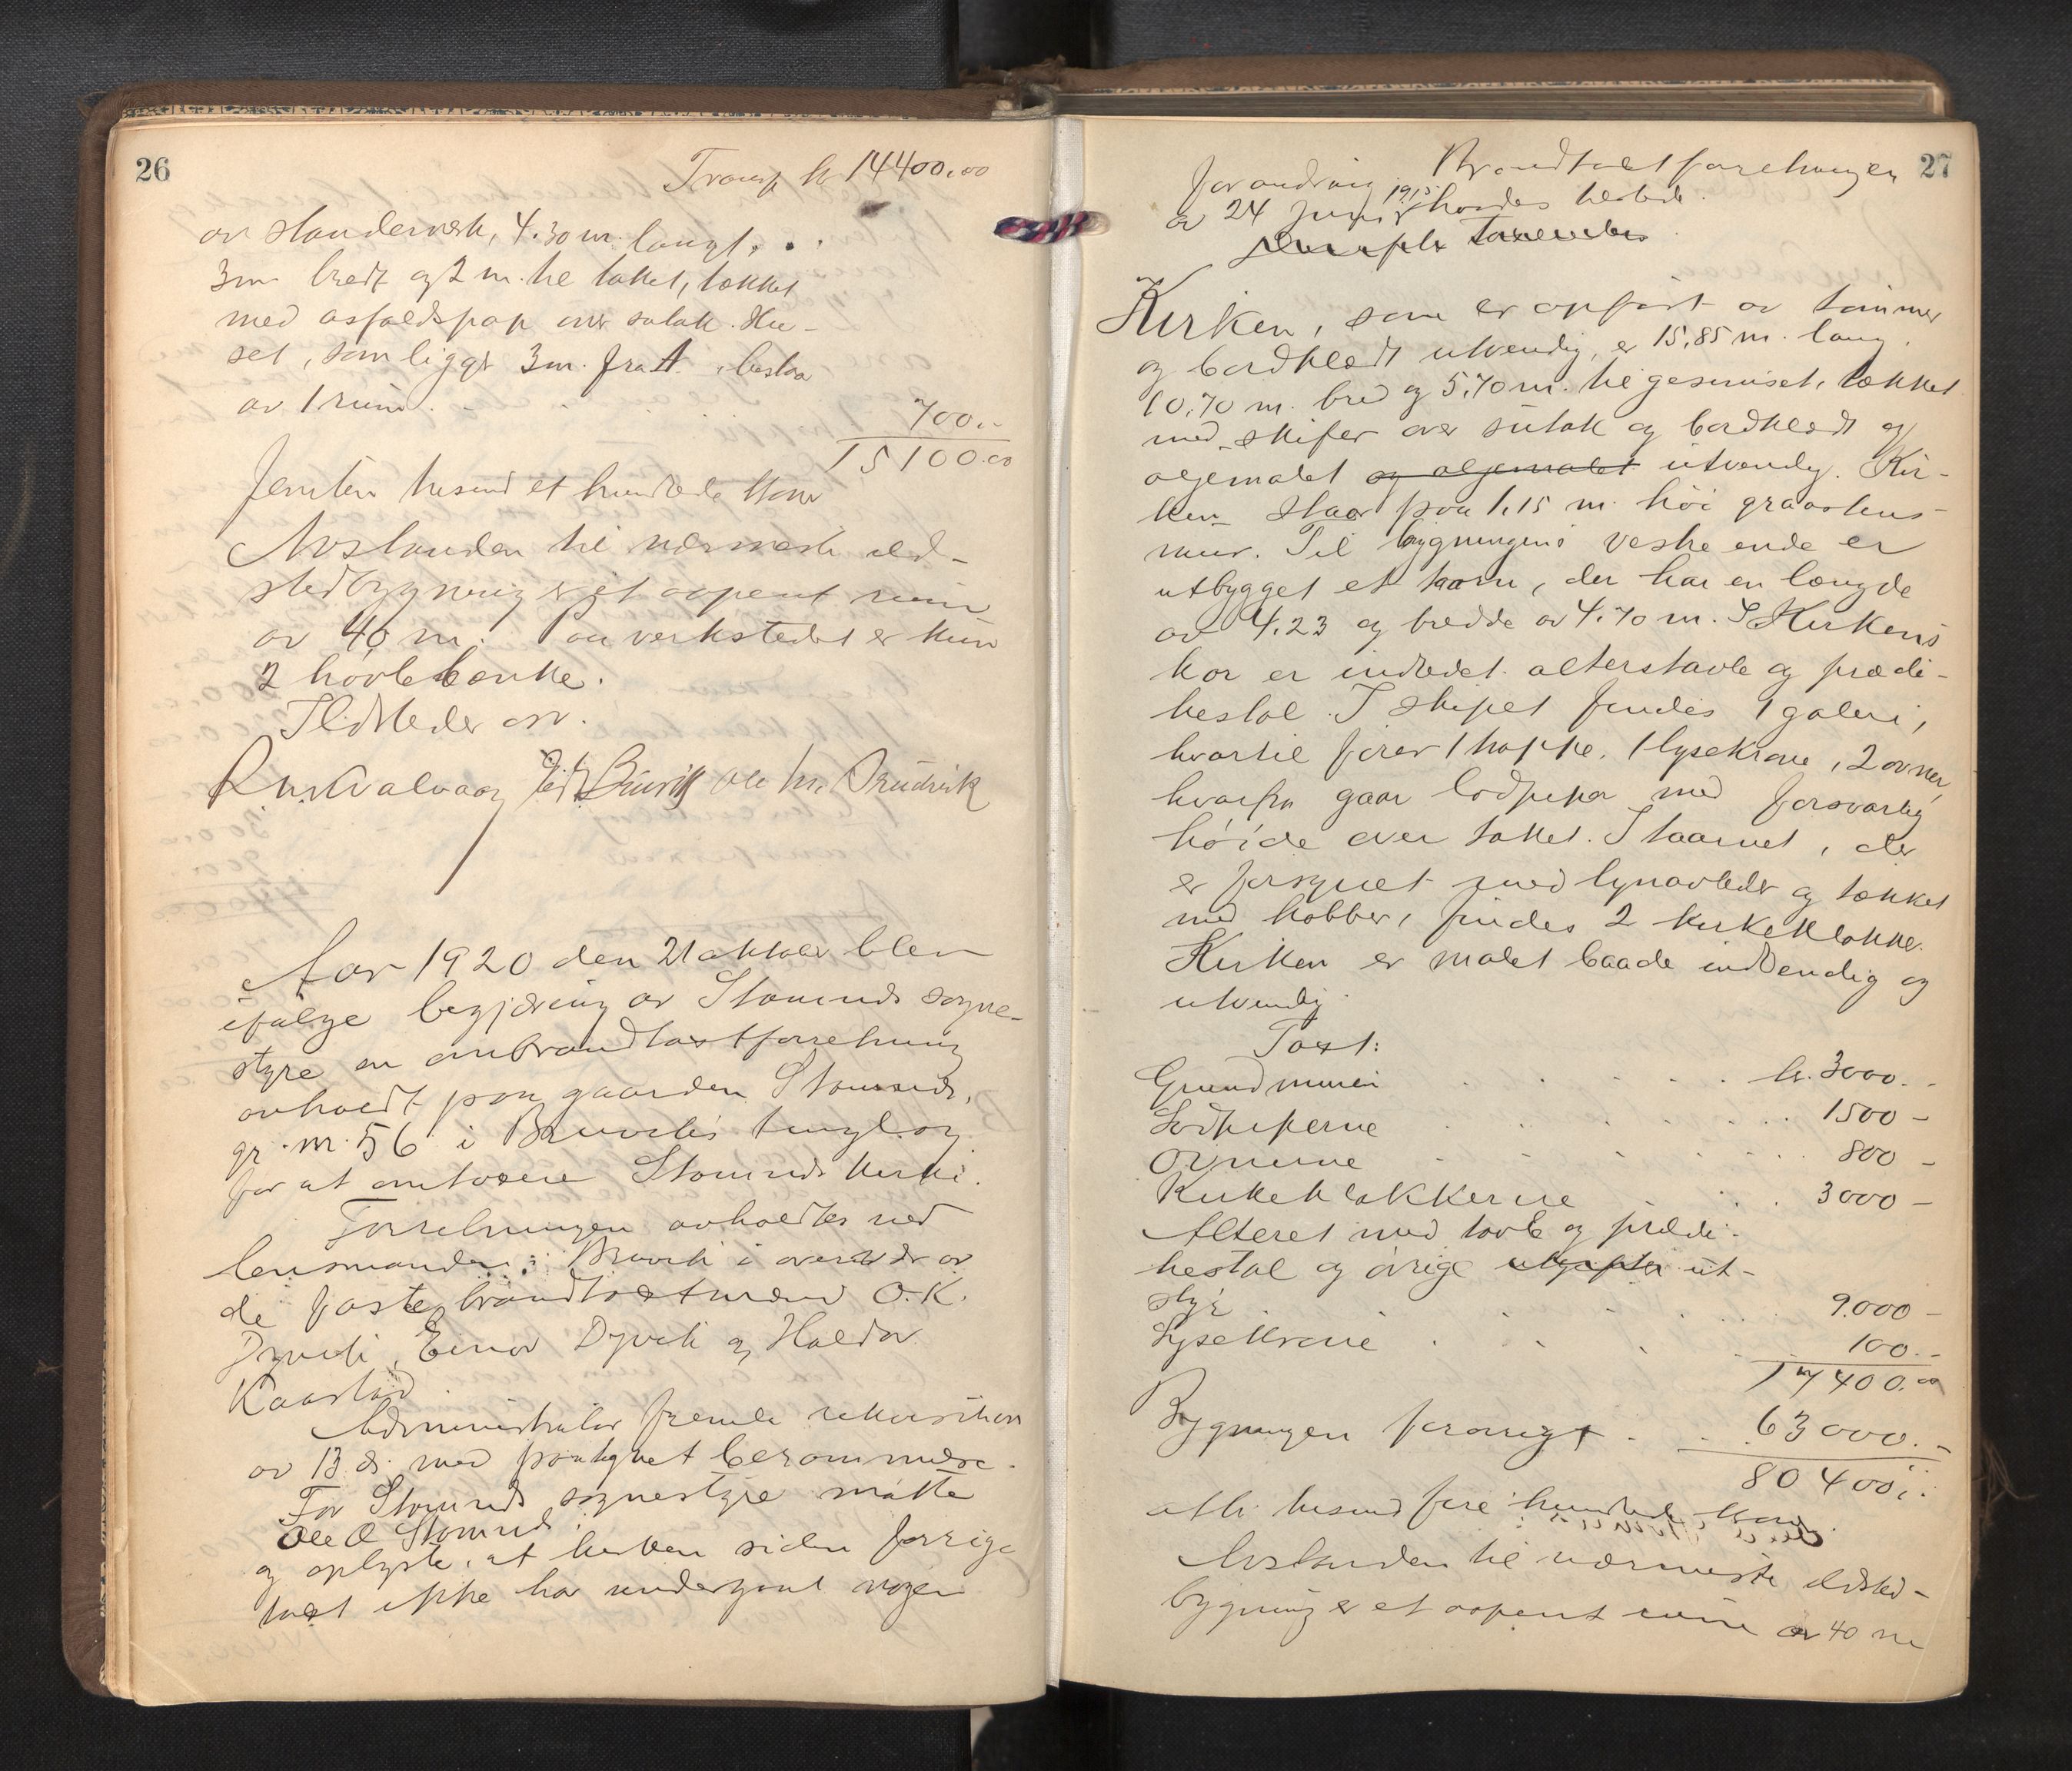 26
Transp kr 14400.00
av standerverk, 4.30 m. langt,
3m bredt og 2 m. til taket, tækket
med asfaldspap over sutak. Hu-
set, som ligger 3m. fra A. bestaar
av 1 rum.
700.-
15100.00
femten tusend et hundrede kroner
Avstanden til nærmeste ild-
stedbygning er et aapent rum
av 40 m. Paa verkstedet er kun
2 høvlebænke.
Ildsteder
Ole
Aar 1920 den 21 oktober blev
ifølge begjæring av Stamnes sogne-
styre en ombrandtaxtforretning
avholdt paa gaarden Stamnes,
gr. nr. 56 i Bruviks tinglag
for at omtaxere Stamnes kirke.
Forretningen avholdtes ved
lensmanden i Bruvik i overvær av
de faste brandtaxtmænd O. K.
Dyvik, Einar Dyvik og Haldor
Kaarstad.
Administrator fremla rekvisition
av 13 ds. med paategnet berammelse.
For Stamnes sognestyre møtte
Ole O Stamnes
og oplyste, at kirken siden forrige
taxt ikke har undergaat nogen
27
forandring. Brandtaxtforretningen
av 24 juni 1915
Kirken, som er opført av tømmer
og bordklædt utvendig, er 15.85 m. lang,
10.70 m. bred og 5.70 m. til gesimset, tækket
med skifer over sutak og bordklædt og
oljemalet og oljemalet utvendig. Kir-
ken staar paa 1.15 m. høi graastens-
mur. Til bygningens vestre ende er
utbygget et taarn, der har en længde
av 4.23 og bredde av 4.70 m. I Kirkens
kor er indredet altertavle og prædi-
kestol. I skipet findes 1 galeri,
hvortil fører 1 trappe, 1 lysekrone, 2 ovner,
hvorfra gaar lodpiper med forsvarlig
høide over taket. I taarnet, der
er forsynet med lynavleder og tækket
med kobber, findes 2 kirkeklokker.
Kirken er malet baade indvendig og
utvendig.
Taxt:
Grundmuren kr. 3000.-
Lodpiperne 1500-
Ovnerne 800-
Kirkeklokkerne 3000-
Alteret med tavle og prædi-
kestol og øvrige ut-
styr 9.000-
Lysekrone 100.-
17400.00
Bygningen forøvrigt 63000.-
80400.-
otti tusend fire hundrede kroner.
Avstanden til nærmeste ildsted-
bygning er et aapent rum av 40 m